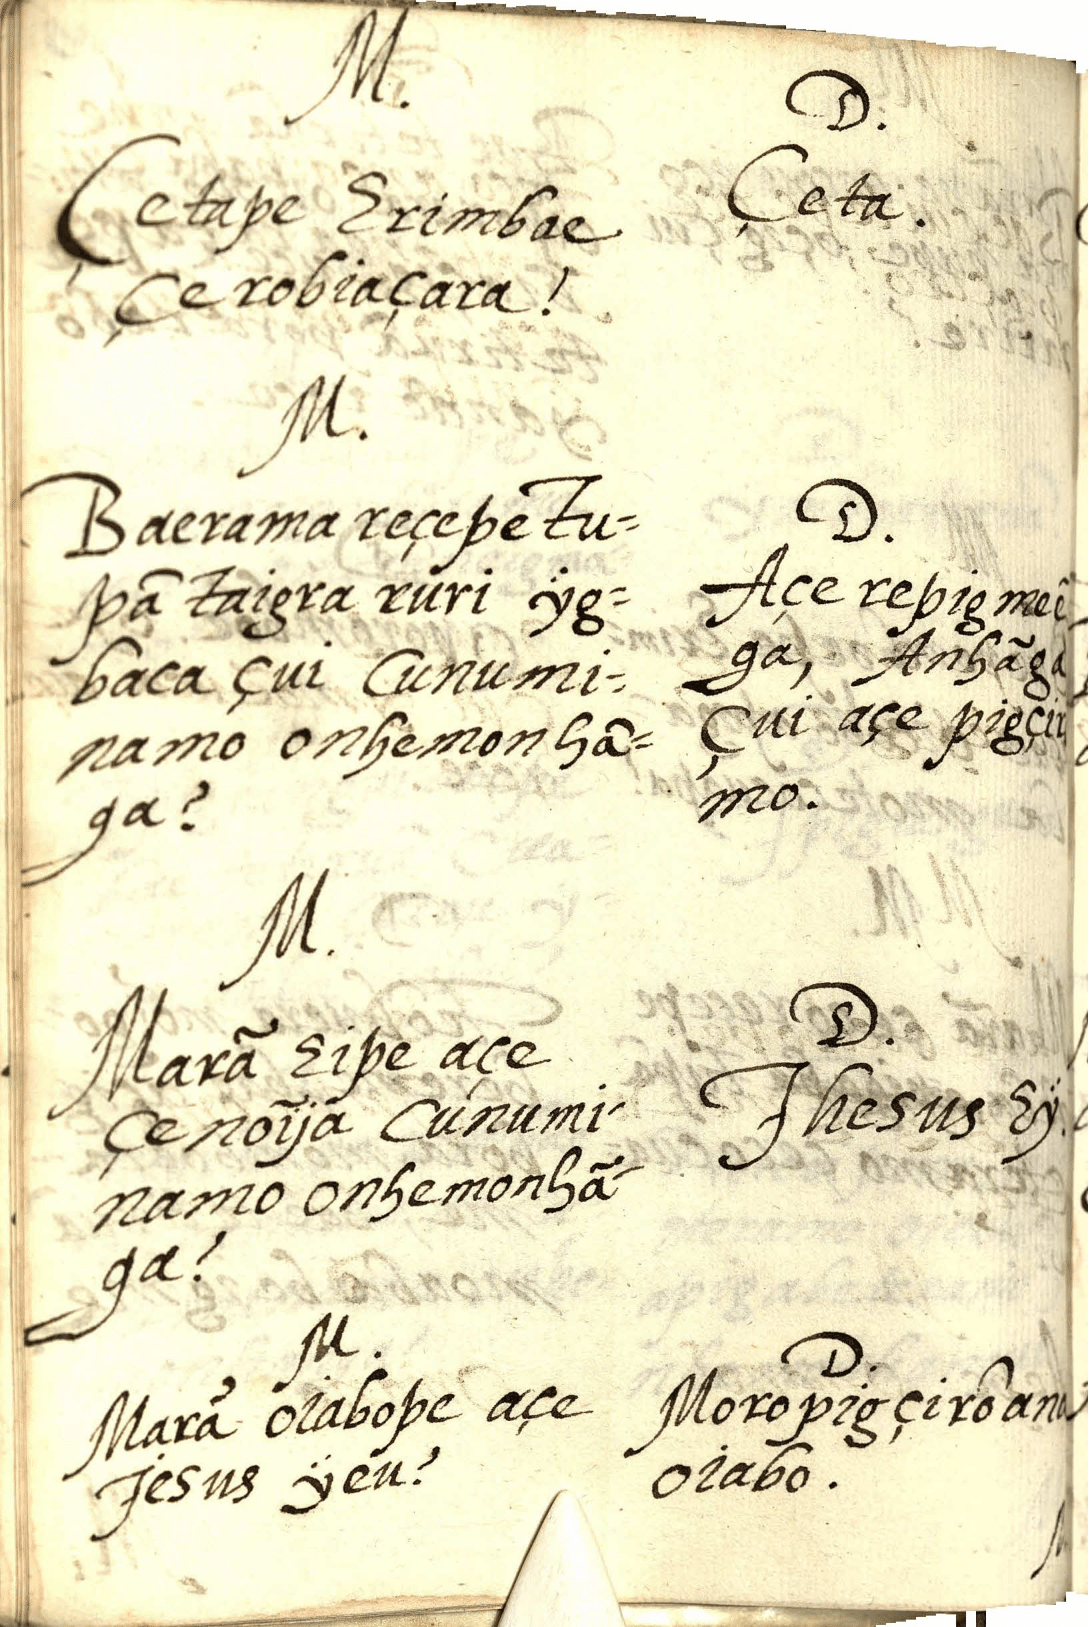 M.
Çetape Erimbae
Çerobiaçara!
D.
Çeta.
M.
Baerama reçepe Tu=
pã taigra ruri ÿg=
baca çui Cunumi=
namo onhemonhã=
ga?
D.
Açe repig meĩ
ga, Anhãga
Çui açe
mo.
M.
Marã Eipe açe
Çenoĩja Cunumi-
namo onhemonhã-
ga?
D.
Jhesus Eÿ.
M.
Marã oiabope açe
Jesus ÿeu?
D.
Moropigçirõana
oiabo.